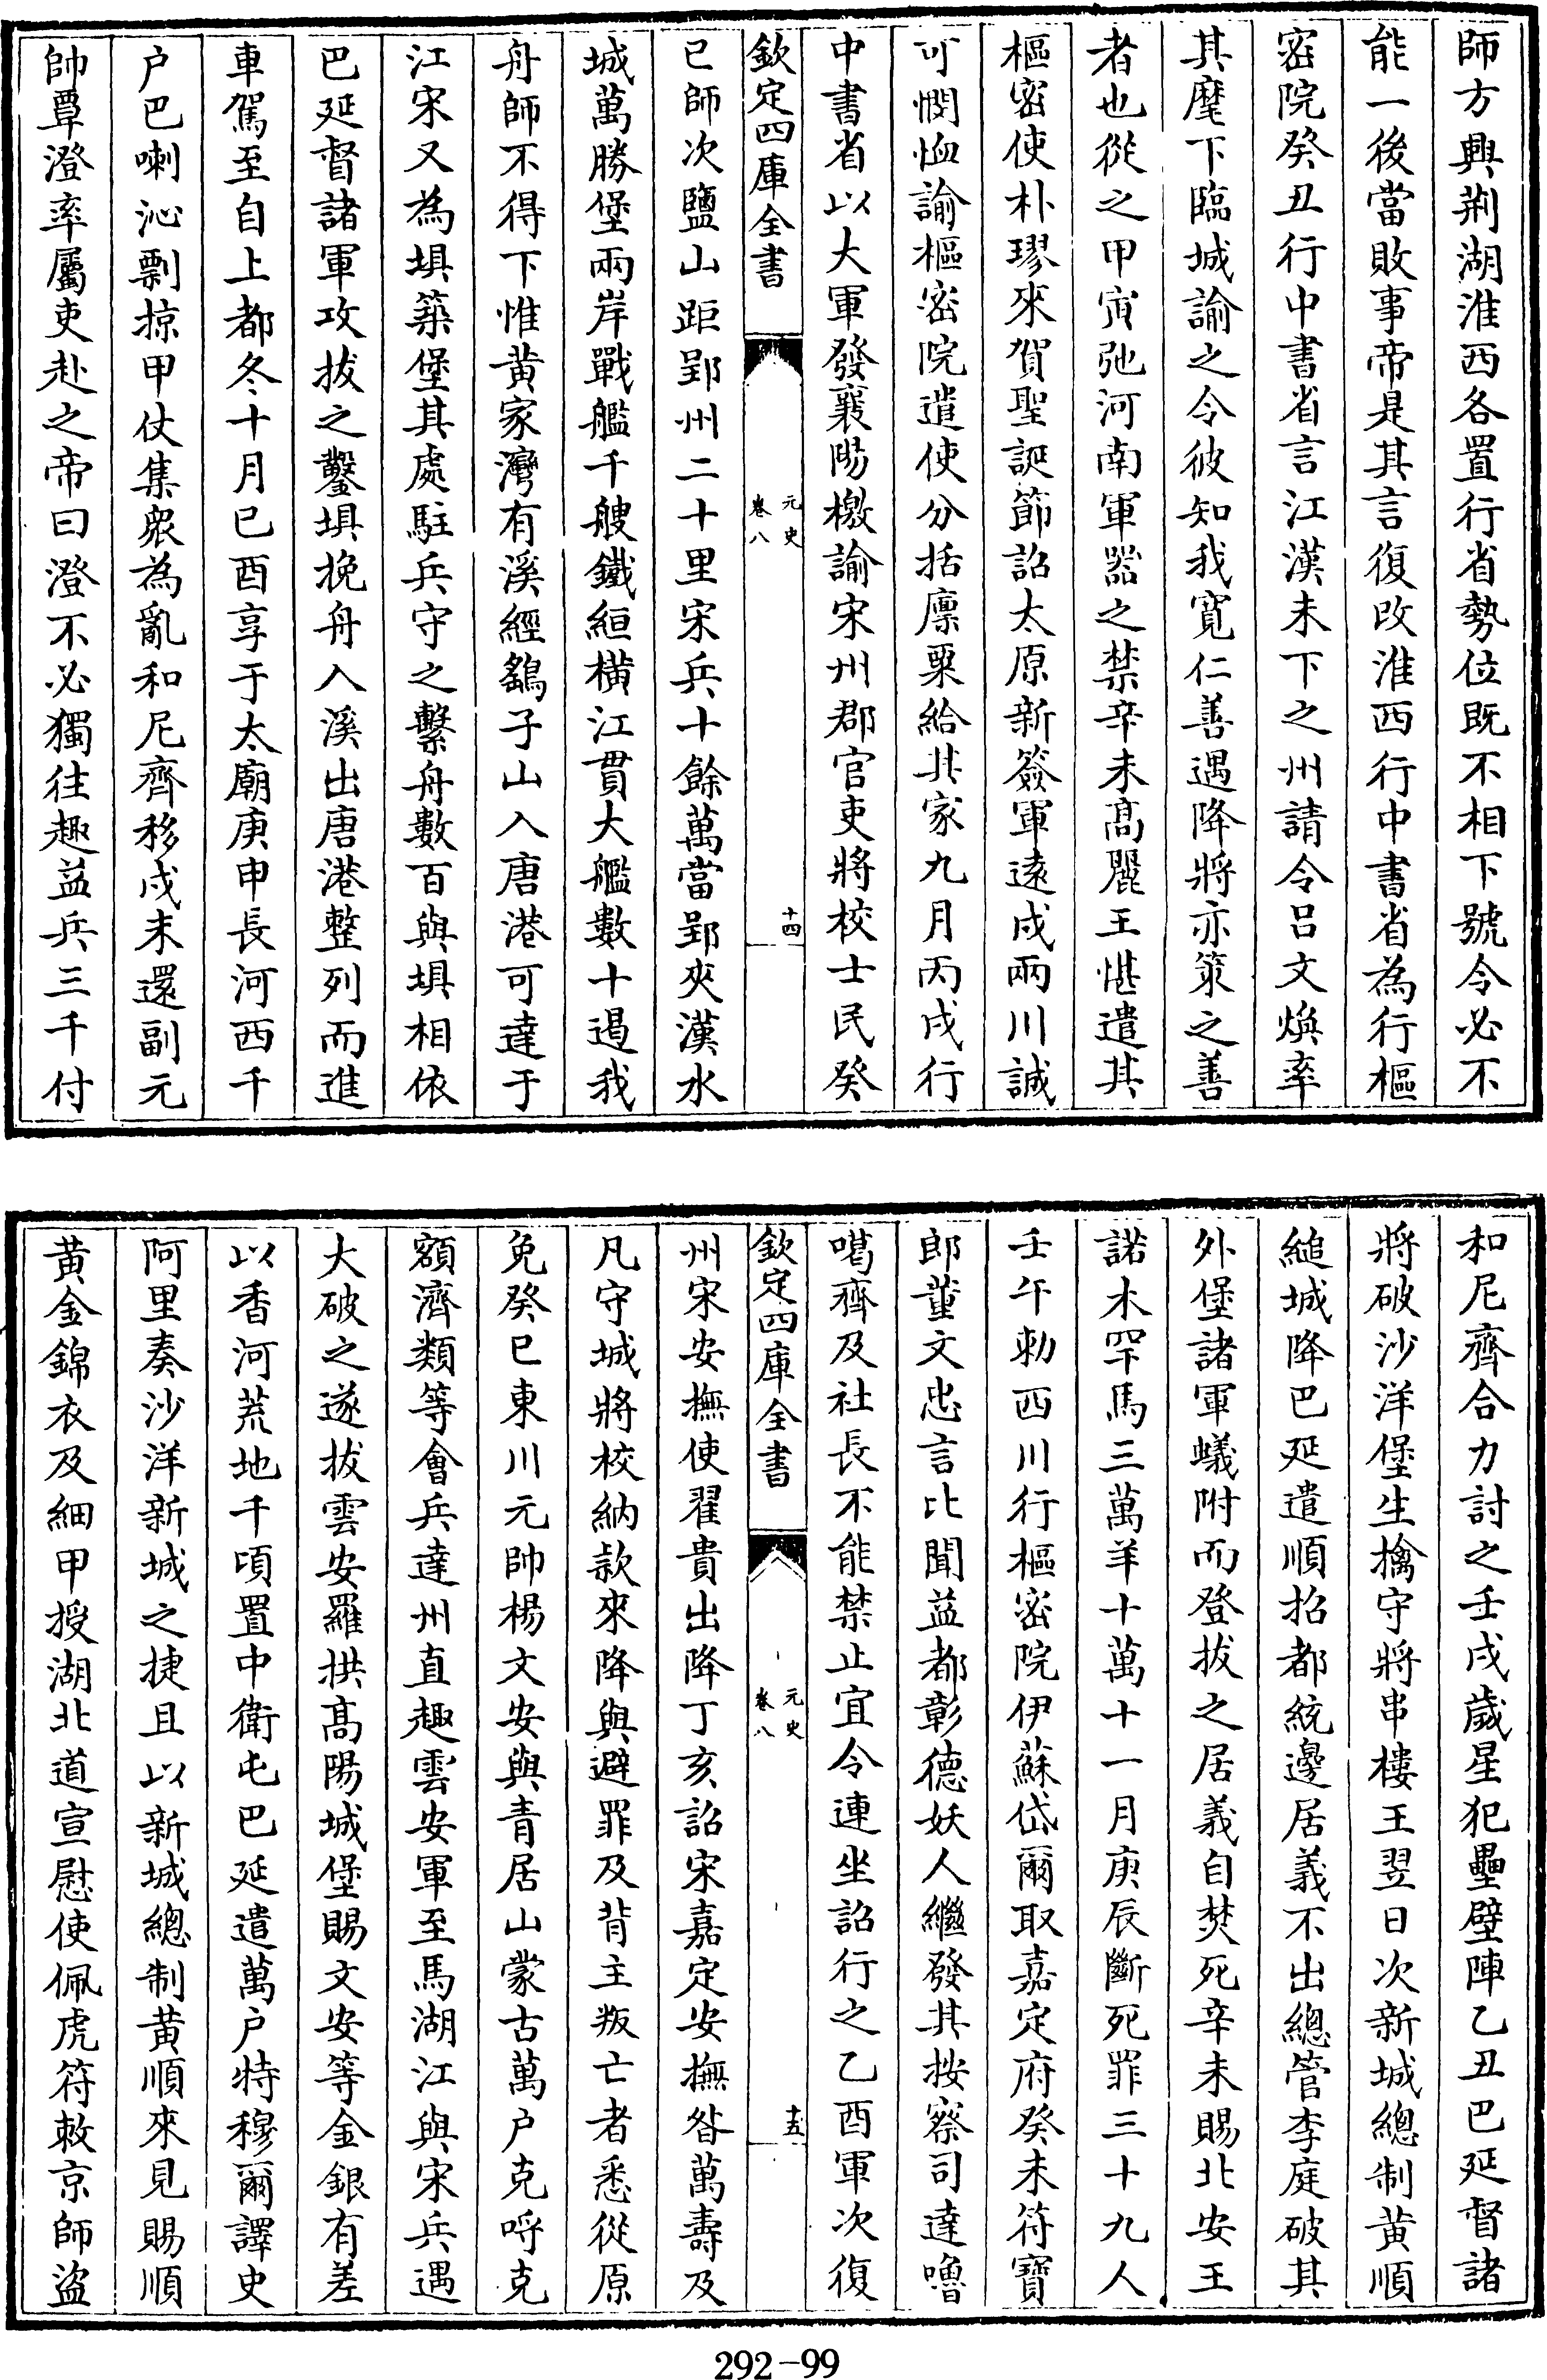 師方興荆湖淮西各置行省勢位既不相下號令必不
能一後當敗事帝是其言復改淮西行中書省為行樞
密院癸丑行中書省言江漢未下之州請令呂文煥率
其麾下臨城諭之令彼知我寛仁善遇降將亦策之善
者也從之甲寅弛河南軍器之禁辛未髙麗王愖遣其
樞密使朴璆來賀聖誕節詔太原新簽軍逺戍兩川誠
可憫恤諭樞密院遣使分括廪粟給其家九月丙戌行
中書省以大軍發襄陽檄諭宋州郡官吏將校士民癸
欽定四庫全書
元史
卷八
十四
巳師次鹽山距郢州二十里宋兵十餘萬當郢夾漢水
城萬勝堡兩岸戰艦千艘鐵絙横江貫大艦數十遏我
舟師不得下惟黄家灣有溪經鷂子山入唐港可達于
江宋又為埧築堡其處駐兵守之繫舟數百與埧相依
巴延督諸軍攻拔之鑿埧挽舟入溪出唐港整列而進
車駕至自上都冬十月已酉享于太廟庚申長河西千
户巴喇沁剽掠甲仗集衆為亂和尼齊移戍未還副元
帥覃澄率屬吏赴之帝曰澄不必獨往趣益兵三千付
和尼齊合力討之壬戌歲星犯壘壁陣乙丑巴延督諸
將破沙洋堡生擒守將串樓王翌日次新城總制黄順
縋城降巴延遣順招都統邊居義不出總管李庭破其
外堡諸軍蟻附而登拔之居義自焚死辛未賜北安王
諾木罕馬三萬羊十萬十一月庚辰斷死罪三十九人
壬午勅西川行樞密院伊蘇岱爾取嘉定府癸未符寶
郎董文忠言比聞益都彰德妖人繼發其按察司達嚕
噶齊及社長不能禁止宜令連坐詔行之乙酉軍次復
欽定四庫全書
元史
卷八
十五
州宋安撫使翟貴出降丁亥詔宋嘉定安撫昝萬壽及
凡守城將校納款來降與避罪及背主叛亡者悉從原
免癸巳東川元帥楊文安與青居山蒙古萬户克呼克
額濟類等會兵達州直趣雲安軍至馬湖江與宋兵遇
大破之遂拔雲安羅拱髙陽城堡賜文安等金銀有差
以香河荒地千頃置中衛屯巴延遣萬户特穆爾譯史
阿里奏沙洋新城之捷且以新城總制黄順來見賜順
黄金錦衣及細甲授湖北道宣慰使佩虎符敕京師盜
292-99